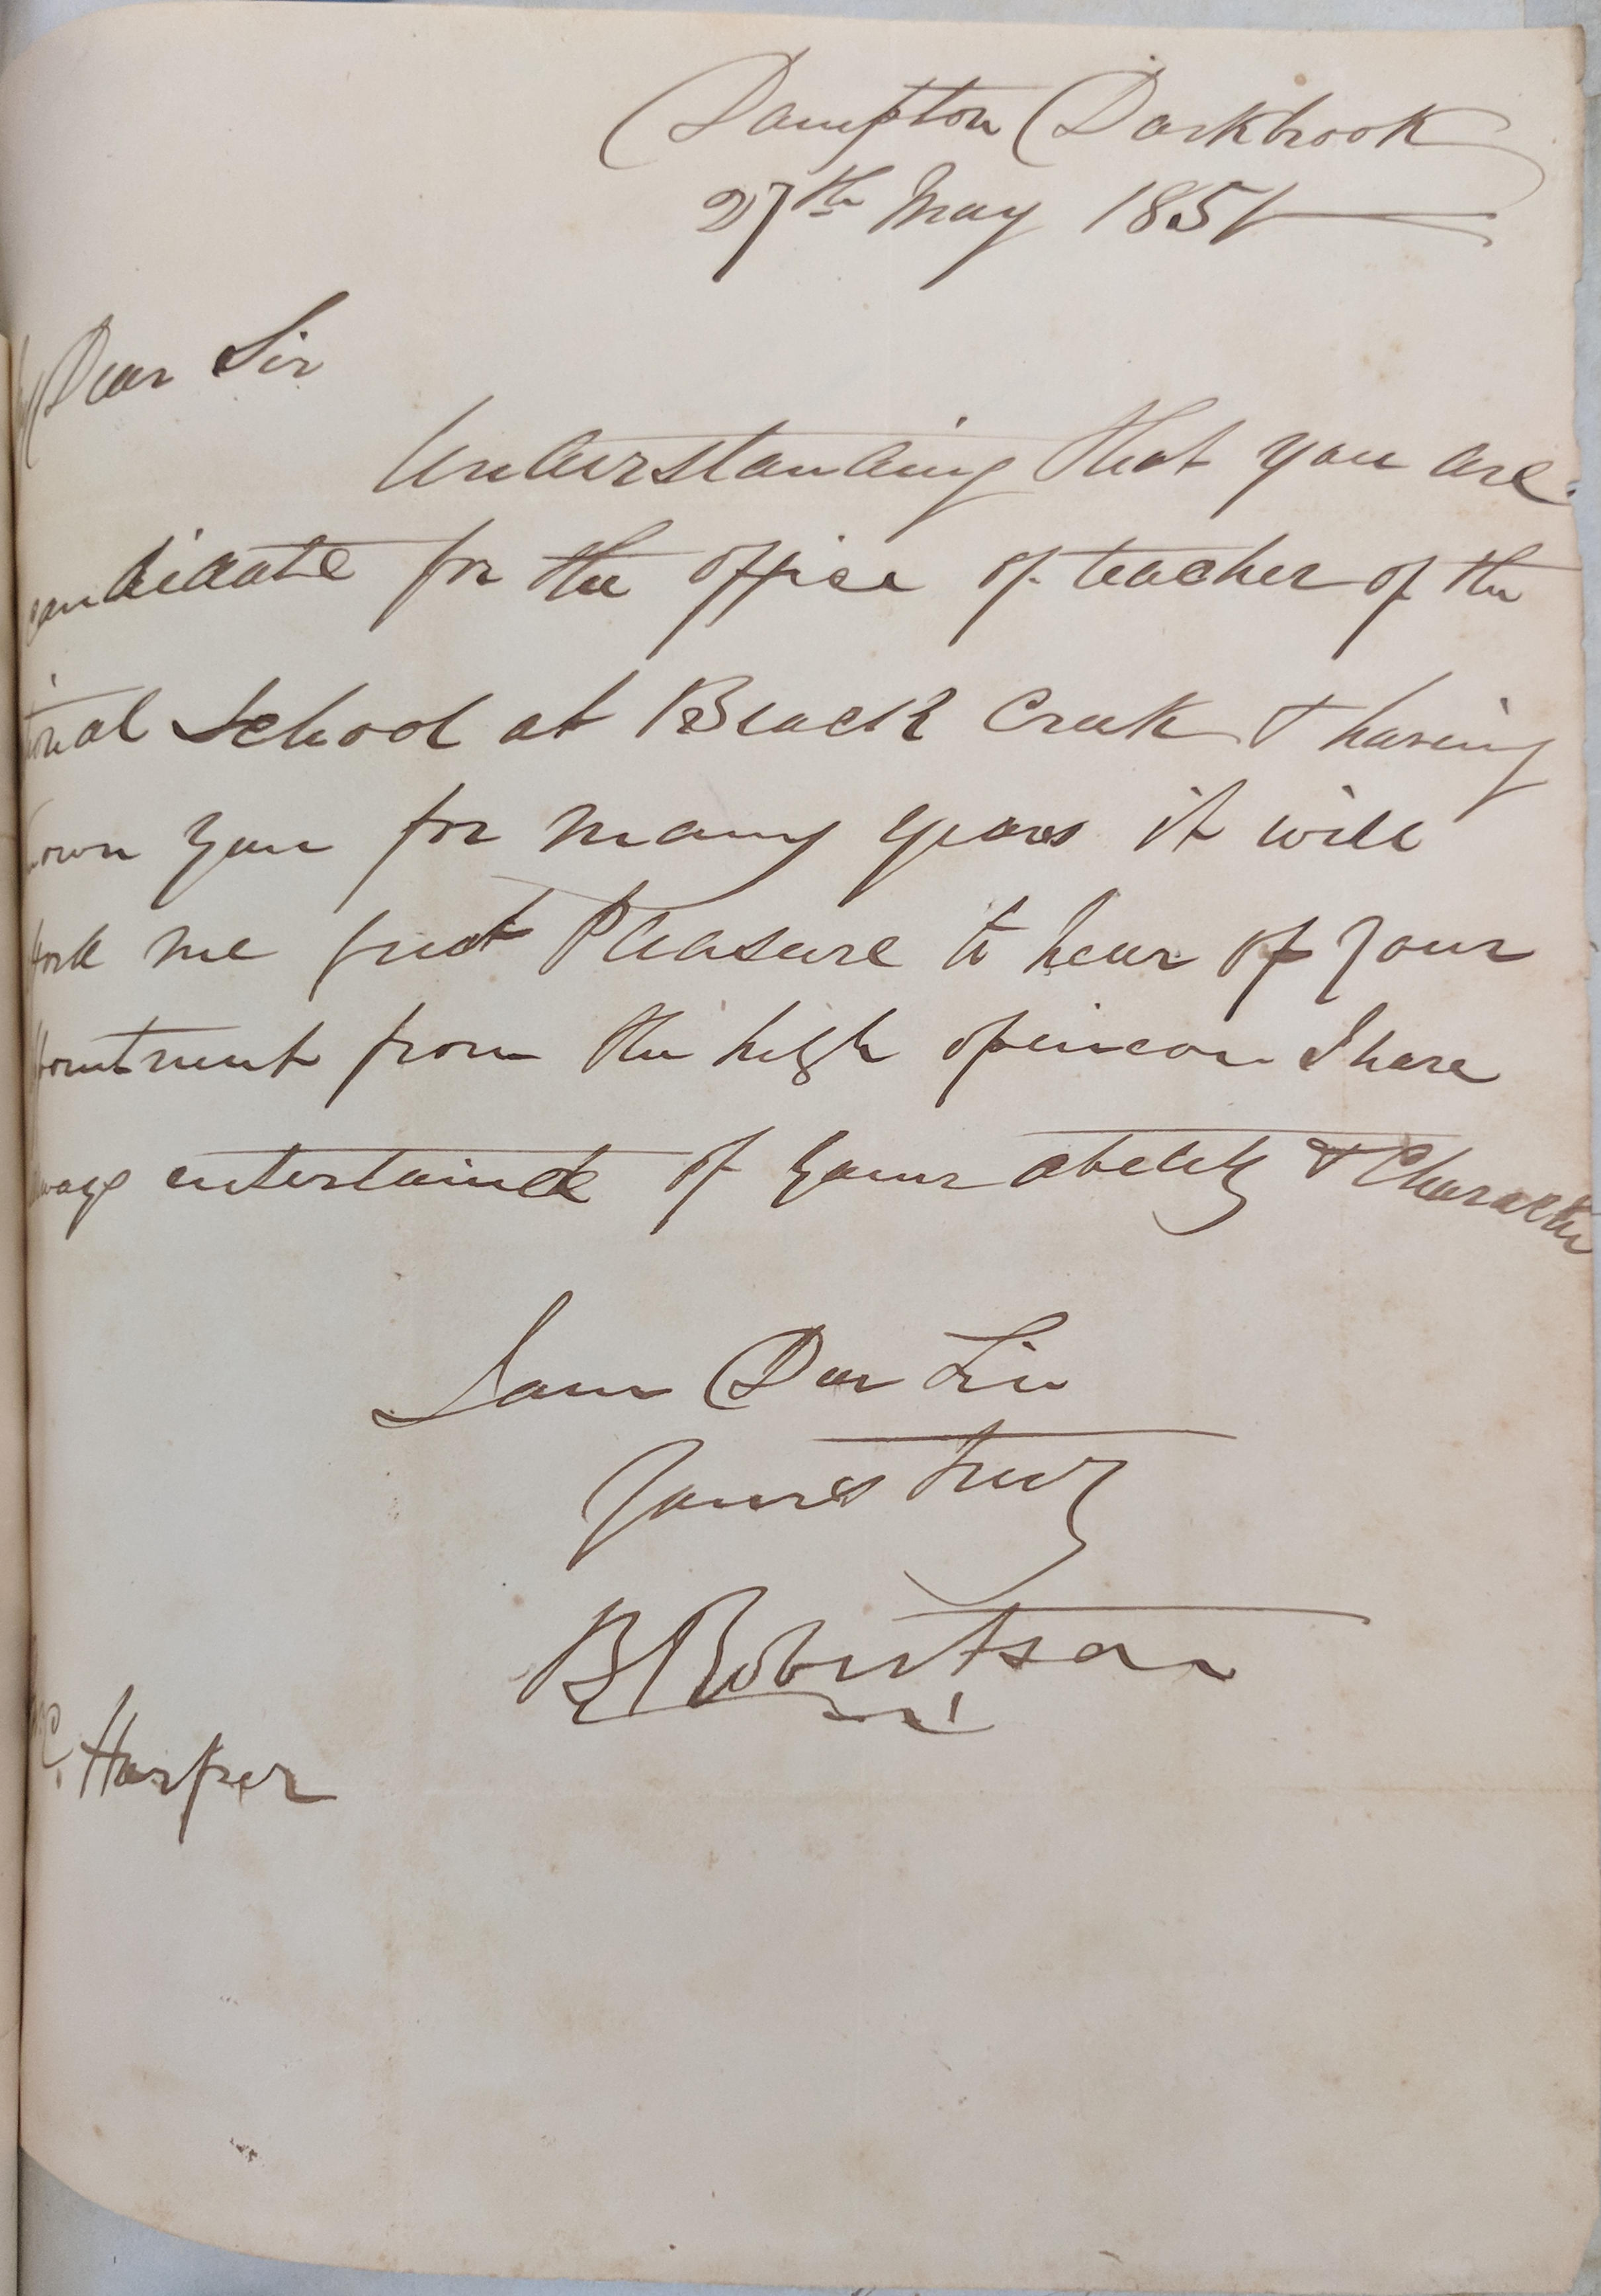 Dampton Darkbrook
27th May 1851
My Dear Sir
Understanding that you are a
candidate for the office of teacher of the
tional School at Black Creek & having
nown you for many years it will
fford me great Pleasure to hear of your
ppointment from the high opinion I have
lways entertained of your ability & Character
I am Dear Sir
Yours truly
B Robertson
Harper